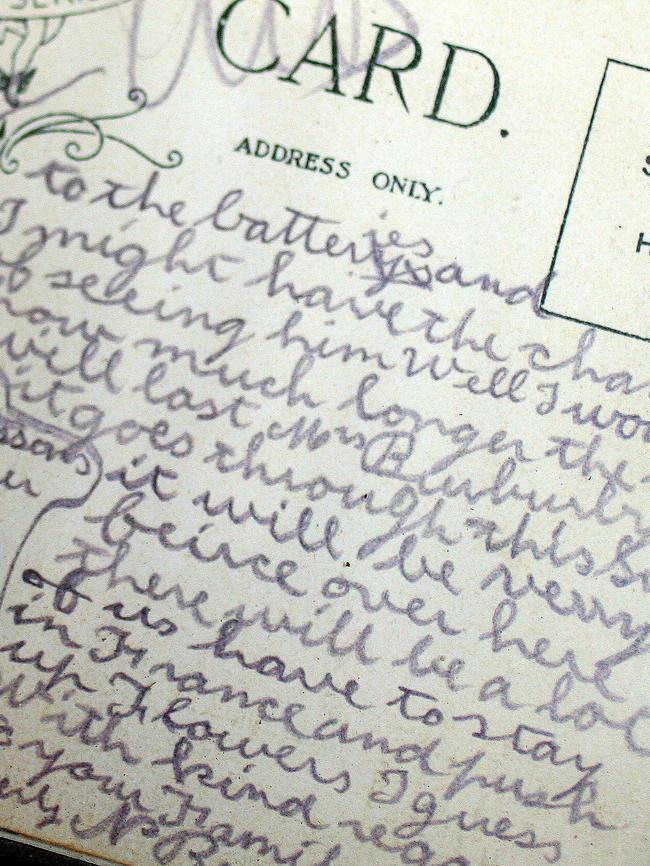 CARD.
ADDRESS ONLY.
ies
to the batterys and
I might have the cha
of seeing him Well I wo
how much longer the
will last Mrs Burburb
it goes through this Su
it will be verry
beirce over here
there will be a lot
of us have to stay
in France and push
up Flowers I guess
with kind rega
your Famil